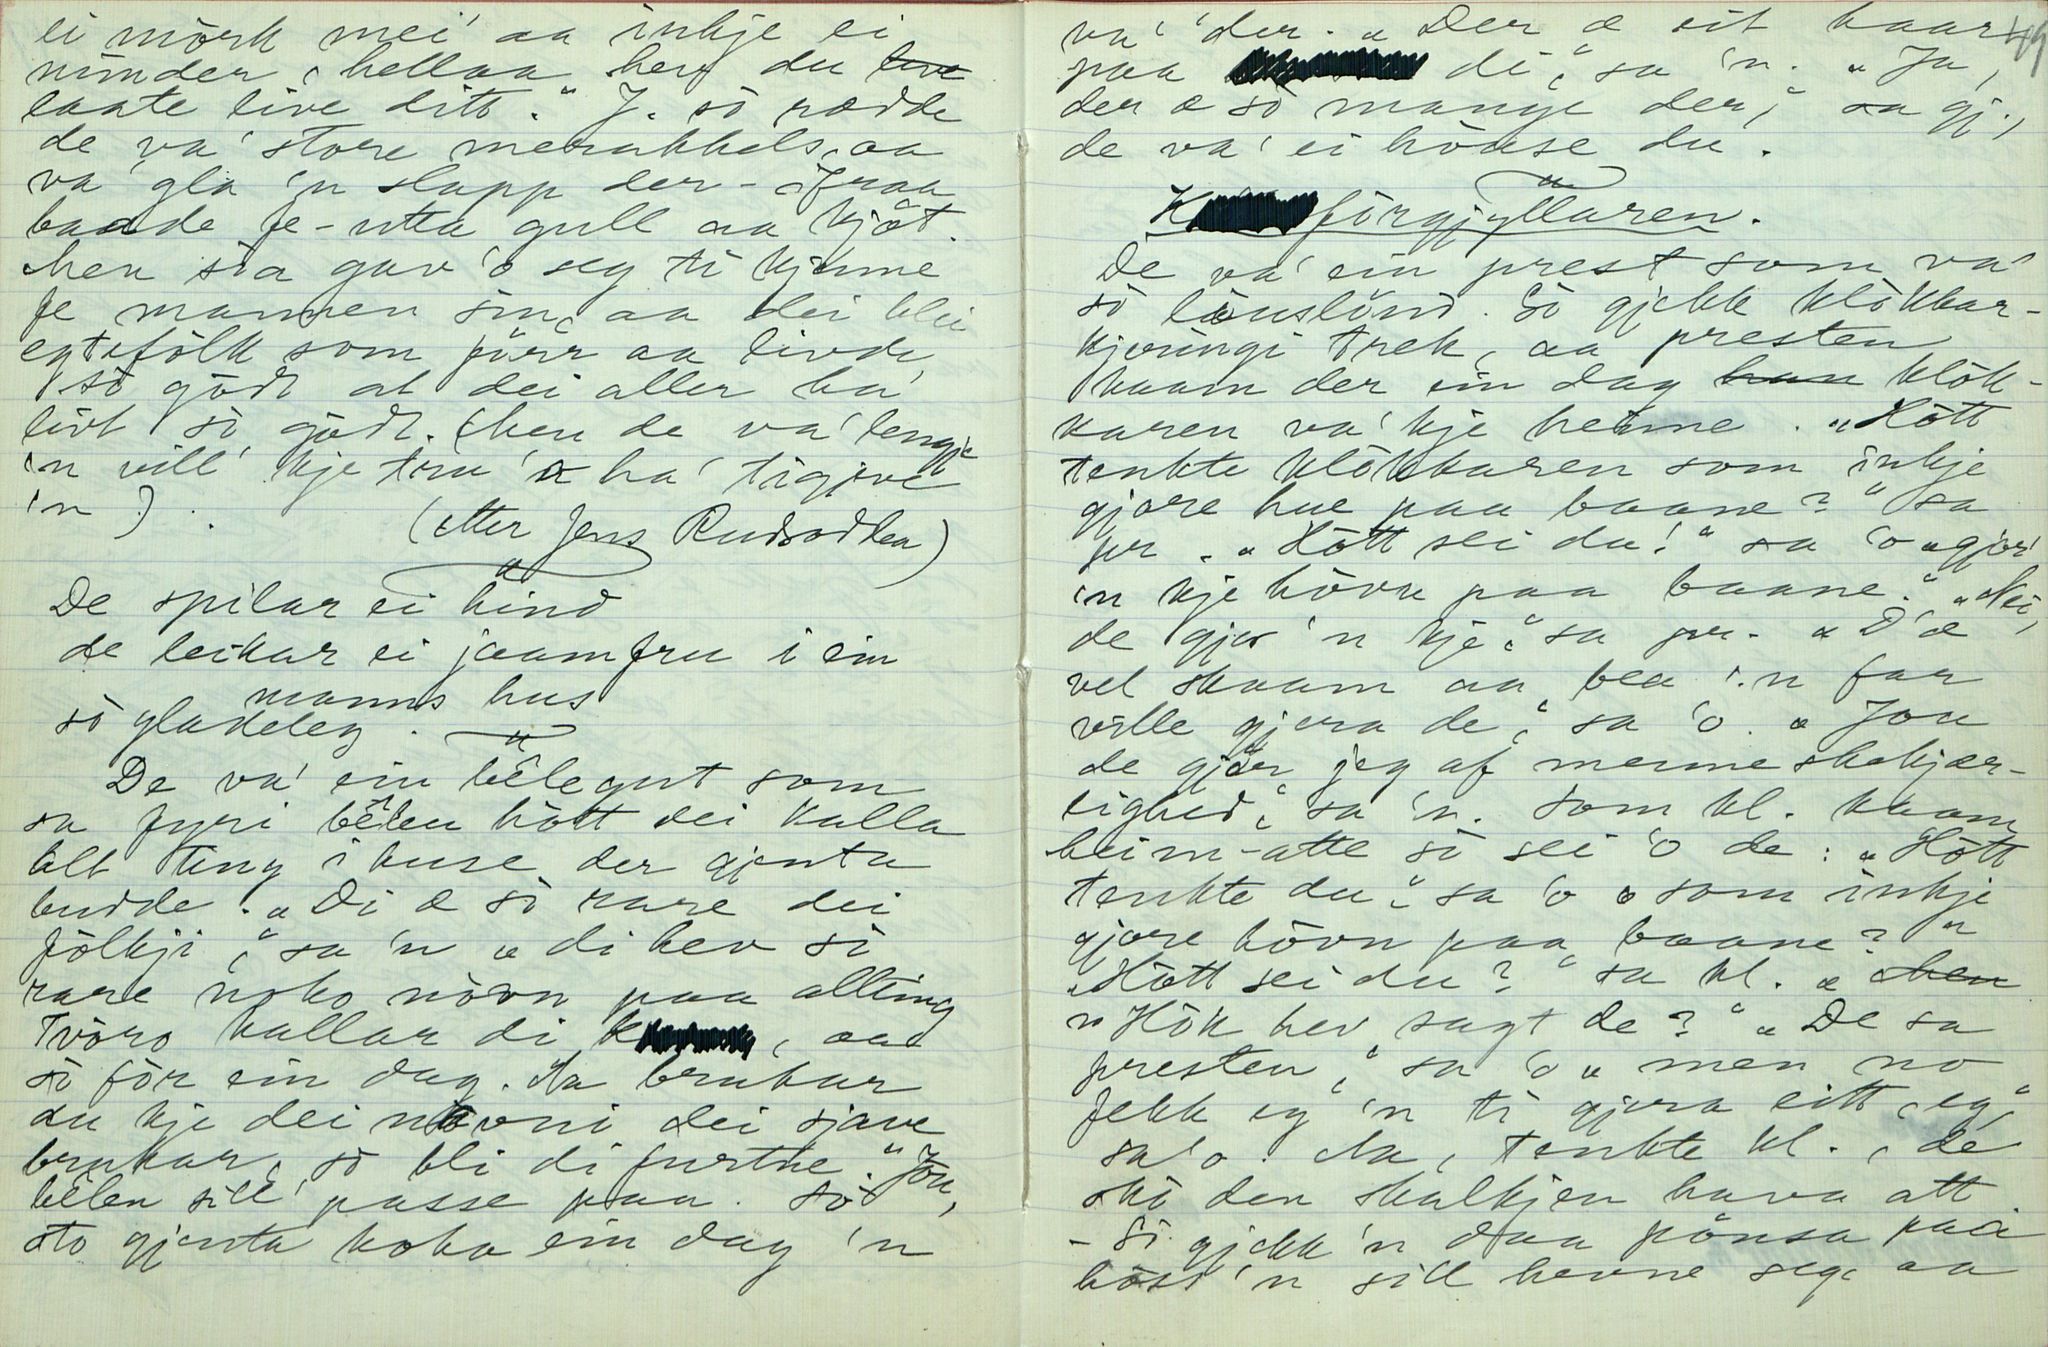 ei mörk mei' aa inkje ei
minder, hellaa hev du live
laate live ditt." J. sö rædde
de va' store merakkels, aa
va' gla 'n slapp der-ifraa
baade fe-utta gull aa kjöt.
Men sia gav 'o seg ti kjenne
fe mannen sin, aa dei blei
egtefölk som förr aa livde
sö gödt at dei aller ha'
livt sö gödt. (Men de va' lengje
'n vill' kje tru 'o ha' tigjeve
'n).
(etter Jens Rudsodkea)
De spilar ei hind
de leikar ei jaamfru i ein
manns hus
sö gladeleg.
De va' ein bêlegut som
sa fyri bêlen hött dei kalla
allt ting i huse der gjenta
budde. „Di æ sö rare dei
fölkji," sa 'n „di hev sö
rare noko növn paa allting
Tvöro kallar di K, aa
sö för ein dag. Aa brukar
du kje dei növni dei sjave
brukar, sö bli di furtne." Jou,
bêlen sill' passe paa. Sö
sto gjenta koka ein dag 'n
va' der. „Der æ eit haar 49
paa di," sa 'n. „Ja,
der æ so mange der," sa gj.,
de va' ei hönse du.
K förgjyllaren.
De va' ein prest som va'
sö löuslönd. Sö gjekk klökkar-
kjæringi trek, aa presten
kaam der ein dag han klök-
karen va' kje heime. „Hött
tenkte klökkaren som inkje
gjore hue paa baane?" sa
pr. „Hött sei du!" sa 'o „gjor'
'n kje hövu paa baane." „Nei,
de gjor 'n kje," sa pr. „D'æ
vel skaam aa bea 'n far
ville gjera de," sa 'o. „Jou
de gjør jeg af menneskekjær-
lighed," sa 'n. Som kl. kaam
heim-atte sö sei 'o de: „Hött
tenkte du," sa 'o „som inkje
gjore hövu paa baane?"
„Hött sei du?" sa kl. „Men
„Hökk hev sagt de?" „De sa
presten," sa 'o „men no
fekk eg 'n ti gjera eitt, eg,"
sa 'o. Aa, tenkte kl., de
skö den skalkjen hava att
- Sö gjekk 'n daa pönsa paa
höss 'n sill hevne seg, aa